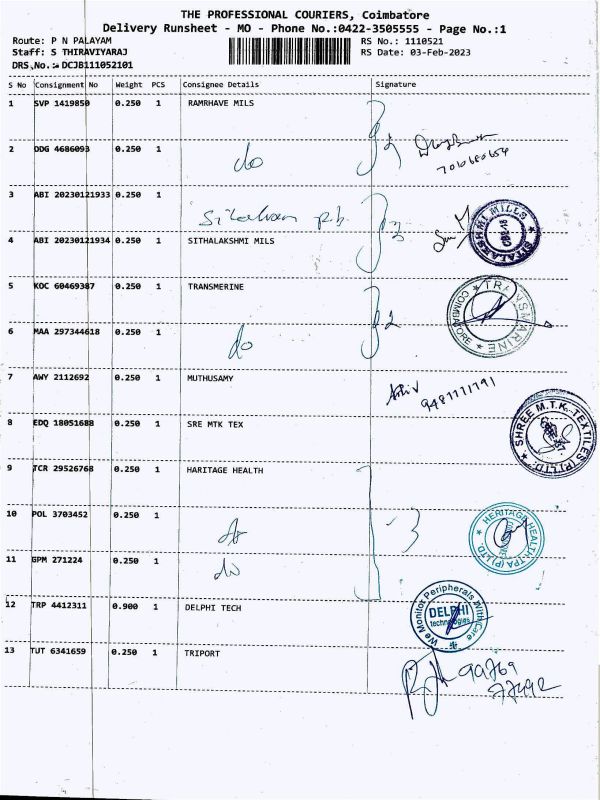 THE PROFESSIONAL COURIERS, Coimbatore
Delivery Runsheet - MO - Phone No.:0422-3505555 - Page No.:1
Route: P N PALAYAM RS No.: 1110521
Staff: S THIRAVIYARAJ RS Date: 03-Feb-2023
DRS.No.: DCJB111052101
S No Consignment No Weight PCS Consignee Details Signature
1 SVP 1419850 0.250 1 RAMRHAVE MILS
2 DDG 4686093 0.250 1 do 2
3 ABI 20230121933 0.250 1
4 ABI 20230121934 0.250 1 SITHALAKSHMI MILS
SITALAKSHMI MILLS
5 KOC 60469387 0.250 1 TRANSMERINE
6 MAA 297344618 0.250 1 do 2
TRANSMARINE COIMBATORE
7 AWY 2112692 0.250 1 MUTHUSAMY
9481111791
8 EDQ 18051688 0.250 1 SRE MTK TEX
SHREE M.T.K. TEXTILES (P) LTD
9 TCR 29526768 0.250 1 HARITAGE HEALTH
10 POL 3703452 0.250 1 do 3
HERITAGE HEALTH TPA (P) LTD
11 GPM 271224 0.250 1 do
12 TRP 4412311 0.900 1 DELPHI TECH
We Monitor Peripherals With Care
DELPHI
technologies
13 TUT 6341659 0.250 1 TRIPORT
99769
77492